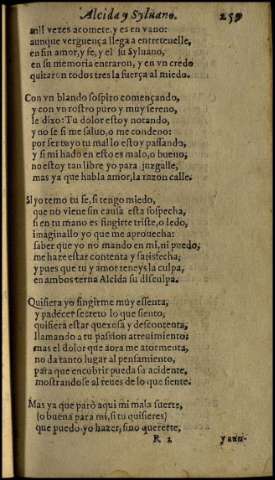 Alcida y Syluano. 259
mil vezes acomete, y es en vano:
aunque verguença llega a entretenelle,
en fin amor, y fe, y el su Syluano,
en su memoria entraron, y en vn credo
quitaron todos tres la fuerça al miedo.
Con vn blando sospiro començando,
y con vn rostro puro y muy sereno,
le dixo: Tu dolor estoy notando,
y no se si me saluo, o me condeno:
por ser tuyo tu mal lo estoy passando,
y si mi hado en esto es malo, o bueno;
no estoy tan libre yo para juzgalle,
mas ya que habla amor, la razon calle.
Si yo temo tu fe, si tengo miedo,
que no viene sin causa esta sospecha,
si en tu mano es fingirte triste, o ledo,
imaginallo yo que me aprouecha:
saber que yo no mando en mi, ni puedo,
me haze estar contenta y satisfecha,
y pues que tu y amor teneys la culpa,
en ambos terna Alcida su disculpa.
Quisiera yo fingirme muy essenta,
y padecer secreto lo que siento,
quisiera estar quexosa y descontenta,
llamando a tu passion atreuimiento:
mas el dolor que aora me atormenta,
no da tanto lugar al pensamiento,
para que encubrir pueda su acidente,
mostrandose al reues de lo que siente.
Mas ya que parò aqui mi mala suerte,
(o buena para mi, si tu quisieres)
que puedo yo hazer, sino quererte,
R 2